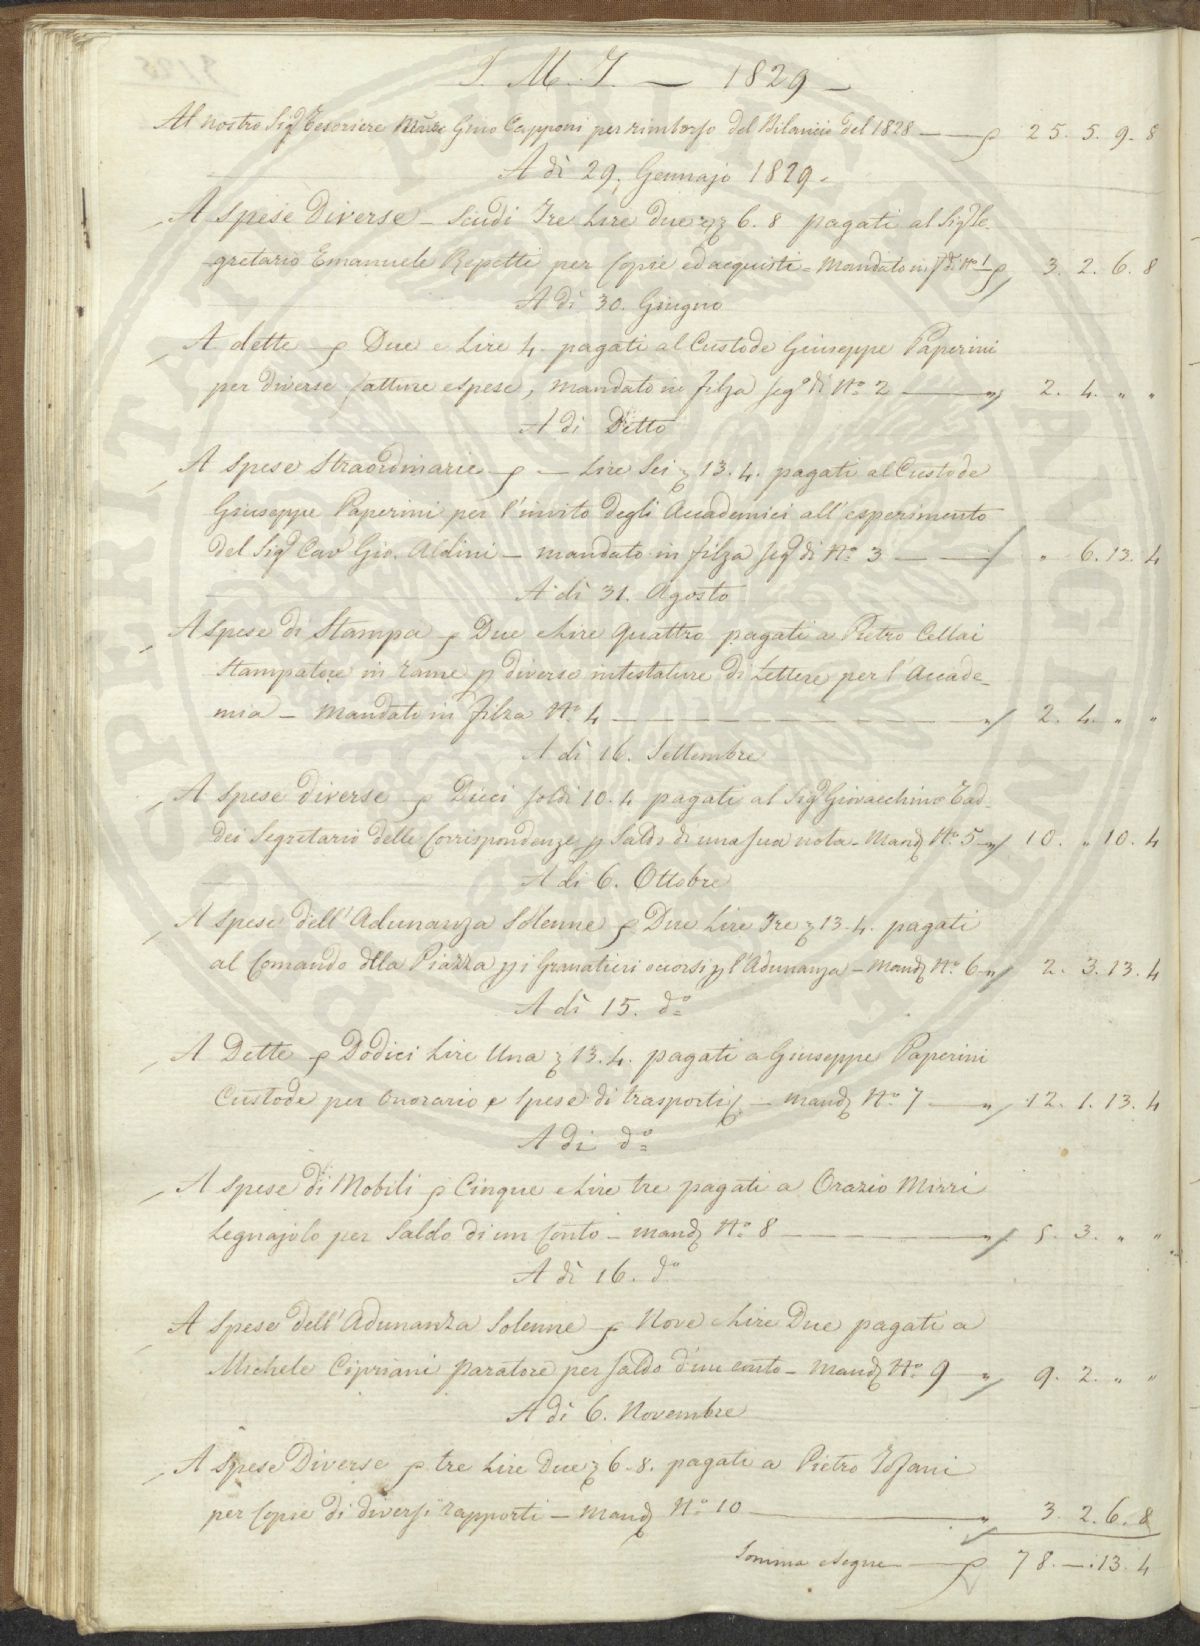 I. M. I. — 1829 —
Al nostro Sigʳ Tesoriere Gino Capponi per rimborso del Bilancio del 1828 — 25. 5. 9. 8
A dì 29. Gennajo 1829.
A Spese Diverse — Scudi Tre Lire due 6. 8 pagati al Sigʳ Se-
gretario Emanuele Repetti per Copie ed acquisti = Mandato in fᵃ di Nº 1 3. 2. 6. 8
A dì 30. Giugno
A dette — Due e Lire 4. pagati al Custode Giuseppe Paperini
per diverse fatture e spese, Mandato in filza segº di Nº 2 — " 2. 4. " "
A dì Detto
A Spese Straordinarie — Lire Sei 13. 4. pagati al Custode
Giuseppe Paperini per l'invito degli Accademici all'esperimento
del Sigʳ Cavʳ Gio. Aldini — mandato in filza segº di Nº 3 — " 6. 13. 4
A dì 31. Agosto
A Spese di Stampa Due e Lire Quattro pagati a Pietro Cellai
Stampatore in rame p diverse intestature di Lettere per l'Accade-
mia — Mandato in filza Nº 4 — " 2. 4. " "
A dì 16. Settembre
A Spese diverse Dieci soldi 10. 4 pagati al Sigʳ Giovacchino Tad-
dei Segretario delle Corrispondenze p Saldo di una sua nota — Mandº Nº 5 " 10. " 10. 4
A dì 6. Ottobre
A Spese dell'Adunanza Solenne Due Lire Tre 13. 4. pagati
al Comando della Piazza p i Granatieri occorsi p l'Adunanza — Mandº Nº 6 " 2. 3. 13. 4
A dì 15. dº
A Dette Dodici Lire Una 13. 4. pagati a Giuseppe Paperini
Custode per Onorario e Spese di trasporti — mandº Nº 7 — " 12. 1. 13. 4
A dì dº
A Spese di Mobili Cinque e Lire tre pagati a Orazio Mirri
Legnajolo per Saldo di un Conto — mandº Nº 8 — " 5. 3. " "
A dì 16. dº
A Spese dell'Adunanza Solenne Nove e Lire Due pagati a
Michele Cipriani Paratore per Saldo d'un conto — Mandº Nº 9 — " 9. 2. " "
A dì 6. Novembre
A Spese Diverse tre Lire Due 6. 8. pagati a Pietro
per Copie di diversi rapporti — Mandº Nº 10 — " 3. 2. 6. 8
Somma e Segue — 78. —. 13. 4